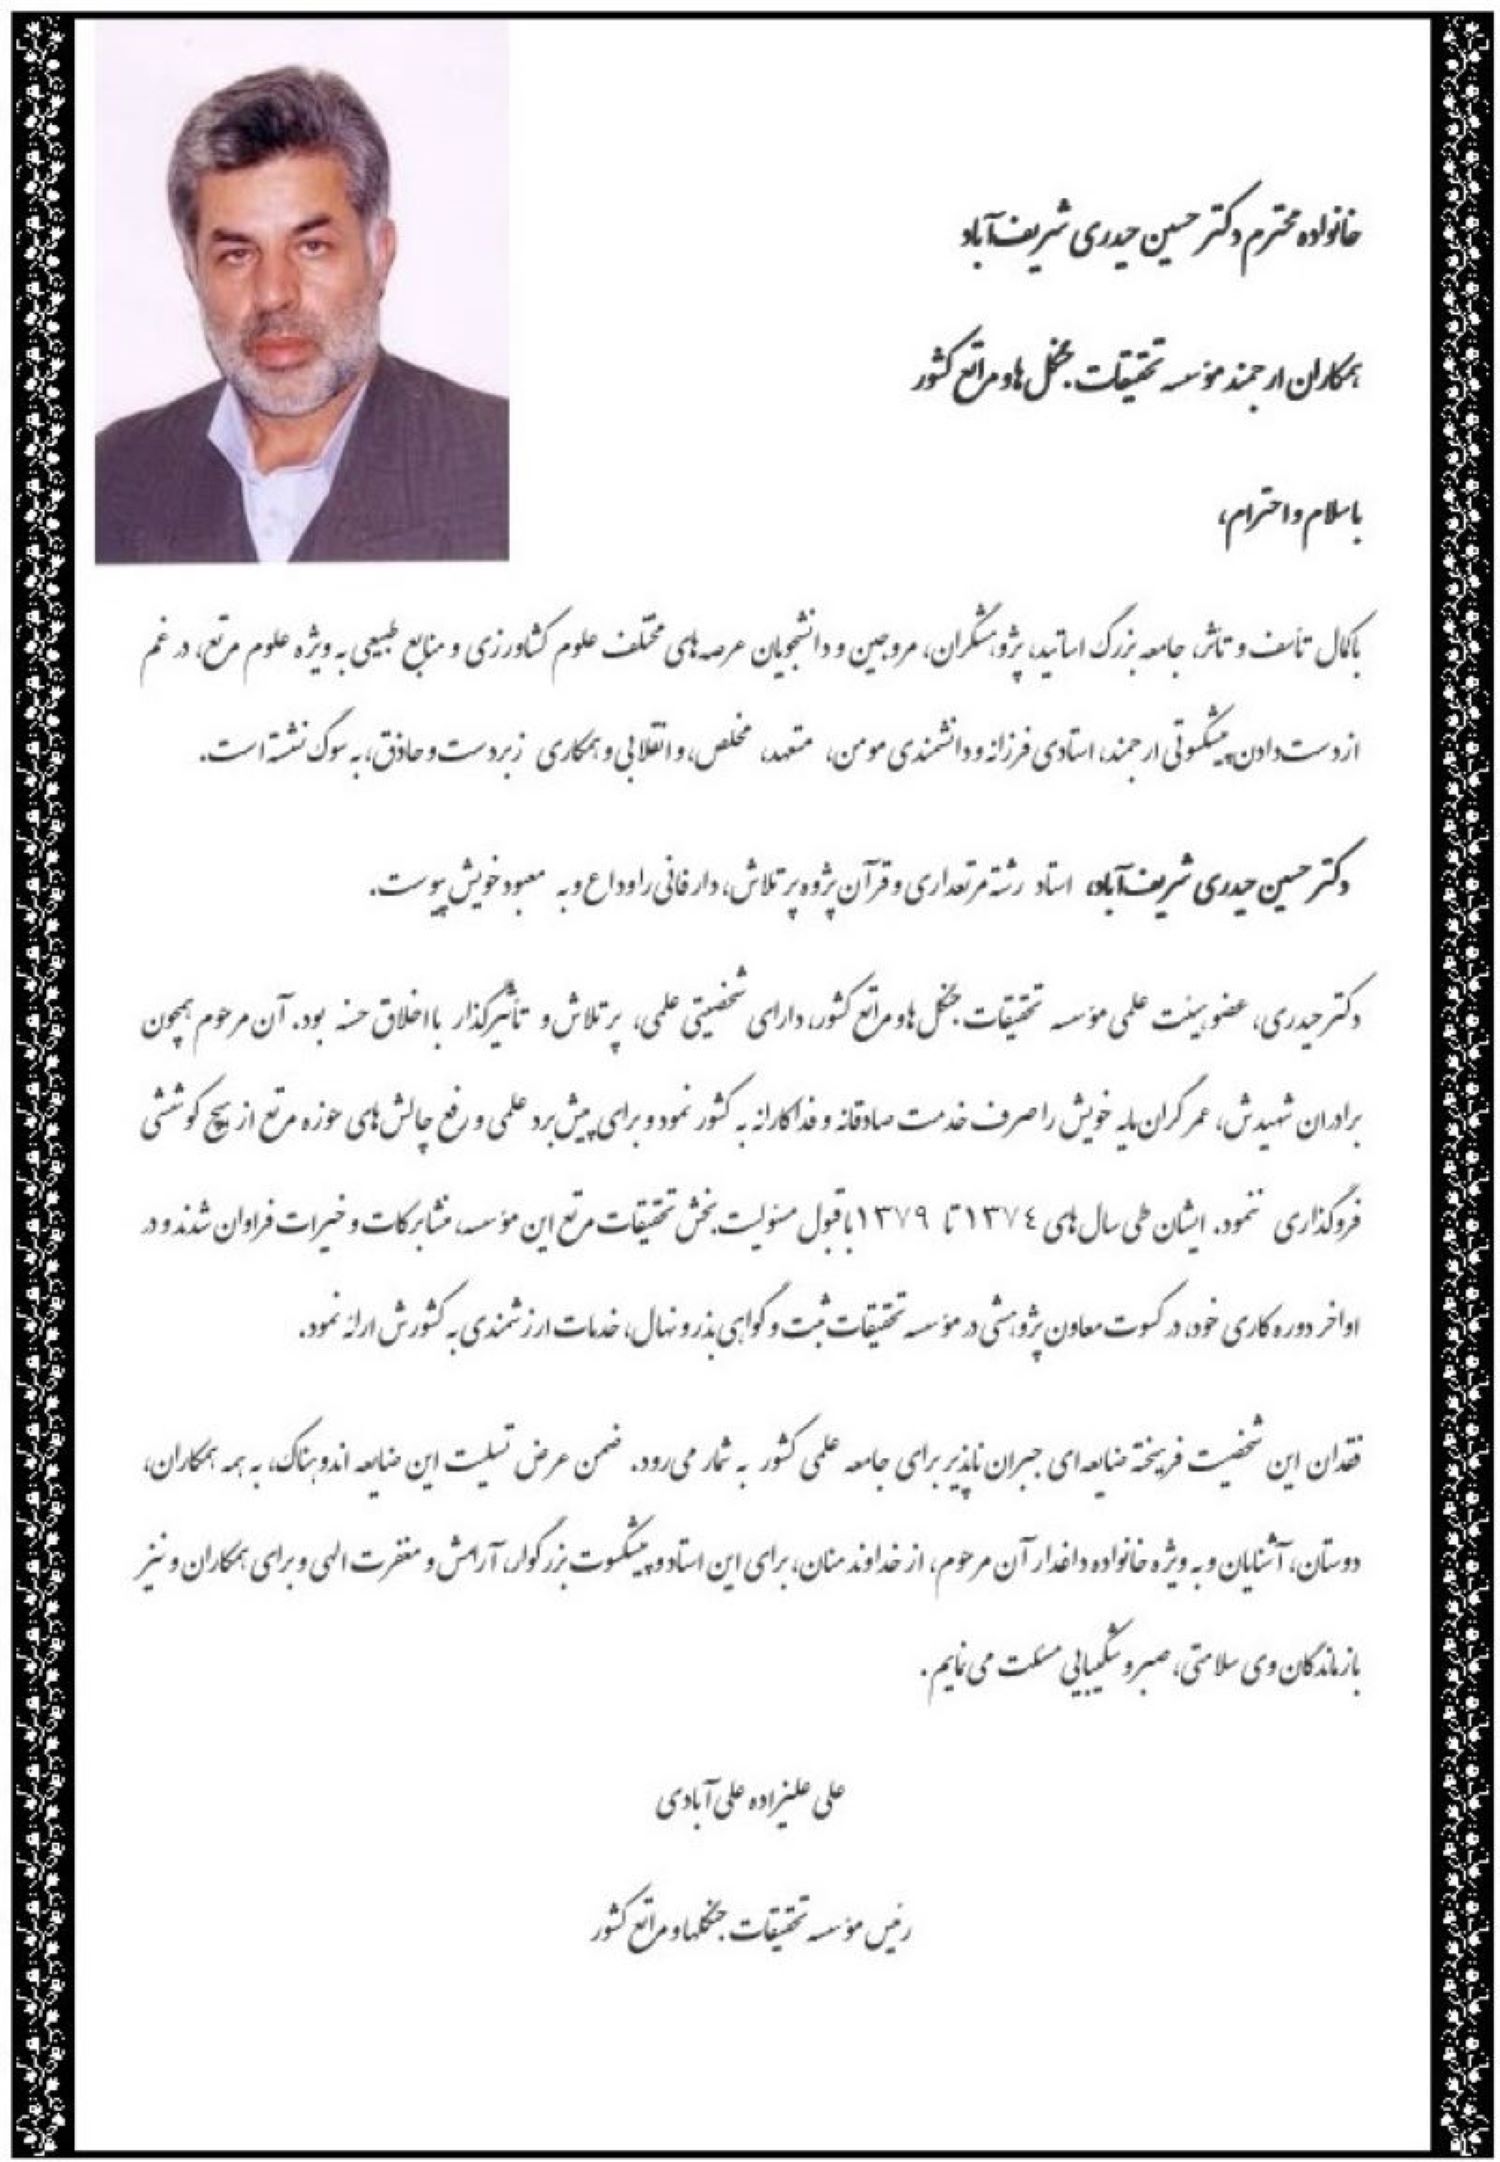 خانواده محترم دکتر حسین حیدری شریف‌آباد
همکاران ارجمند مؤسسه تحقیقات جنگل‌ها و مراتع کشور
باسلام و احترام،
با کمال تأسف و تأثر، جامعه بزرگ اساتید، پژوهشگران، مروجین و دانشجویان عرصه‌های مختلف علوم کشاورزی و منابع طبیعی به ویژه علوم مرتع، در غم
از دست دادن پیشکسوتی ارجمند، استادی فرزانه و دانشمندی مومن، متعهد، مخلص، و انقلابی و همکاری زبردست و حاذق، به سوگ نشسته است.
دکتر حسین حیدری شریف‌آباد، استاد رشته مرتعداری و قرآن پژوه پر تلاش، دار فانی را وداع و به معبود خویش پیوست.
دکتر حیدری، عضو هیئت علمی مؤسسه تحقیقات جنگل‌ها و مراتع کشور، دارای شخصیتی علمی، پر تلاش و تأثیرگذار با اخلاق حسنه بود. آن مرحوم همچون
برادران شهیدش، عمر گران‌مایه خویش را صرف خدمت صادقانه و فداکارانه به کشور نمود و برای پیش‌برد علمی و رفع چالش‌های حوزه مرتع از هیچ کوششی
فروگذاری ننمود. ایشان طی سال‌های ۱۳۷۴ تا ۱۳۷۹ با قبول مسئولیت بخش تحقیقات مرتع این مؤسسه، منشا برکات و خیرات فراوان شدند و در
اواخر دوره کاری خود، در کسوت معاون پژوهشی در مؤسسه تحقیقات ثبت و گواهی بذر و نهال، خدمات ارزشمندی به کشورش ارائه نمود.
فقدان این شخصیت فریخته ضایعه‌ای جبران ناپذیر برای جامعه علمی کشور به شمار می‌رود. ضمن عرض تسلیت این ضایعه اندوهناک، به همه همکاران،
دوستان، آشنایان و به ویژه خانواده داغدار آن مرحوم، از خداوند منان، برای این استاد و پیشکسوت بزرگوار، آرامش و مغفرت الهی و برای همکاران و نیز
بازماندگان وی سلامتی، صبر و شکیبایی مسئلت می‌نمایم.
علی علیزاده علی‌آبادی
رئیس مؤسسه تحقیقات جنگلها و مراتع کشور